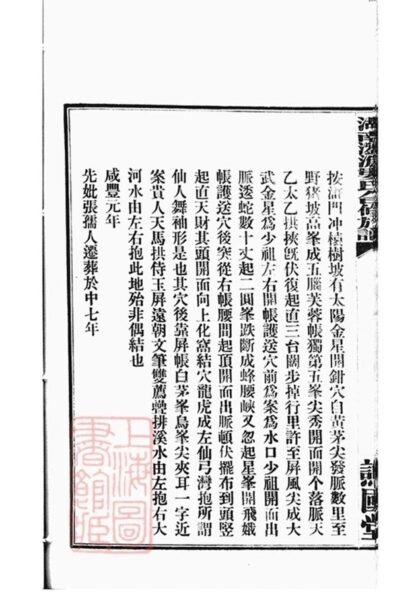 按滸門冲檀樹坡有太陽金星開鉗穴自黃茅尖發脈數里至
野豬坡高峯成五腦芙蓉帳獨第五峯尖秀開面開个落脈天
乙太乙拱挾旣伏復起直三台闊步掉行里許至屏風尖成大
武金星為少祖左右開帳護送穴前為案為水口少祖開面出
脈透蛇數十丈起二圓峯跌斷成蜂腰峽又忽起星峯開飛蛾
帳護送穴後突從右帳腰間起頂開面出脈頓伏擺布到頭竪
起直天財其頭開面向上化窩結穴龍虎成左仙弓灣抱所謂
仙人舞袖形是也其穴後靠屏帳白茅峯烏峯尖夾耳一字近
案貴人天馬拱侍玉屏遠朝文筆雙薦彎排溪水由左抱右大
河水由左右抱此地殆非偶結也
咸豐元年
先妣張孺人遷葬於中七年
上海圖書館藏